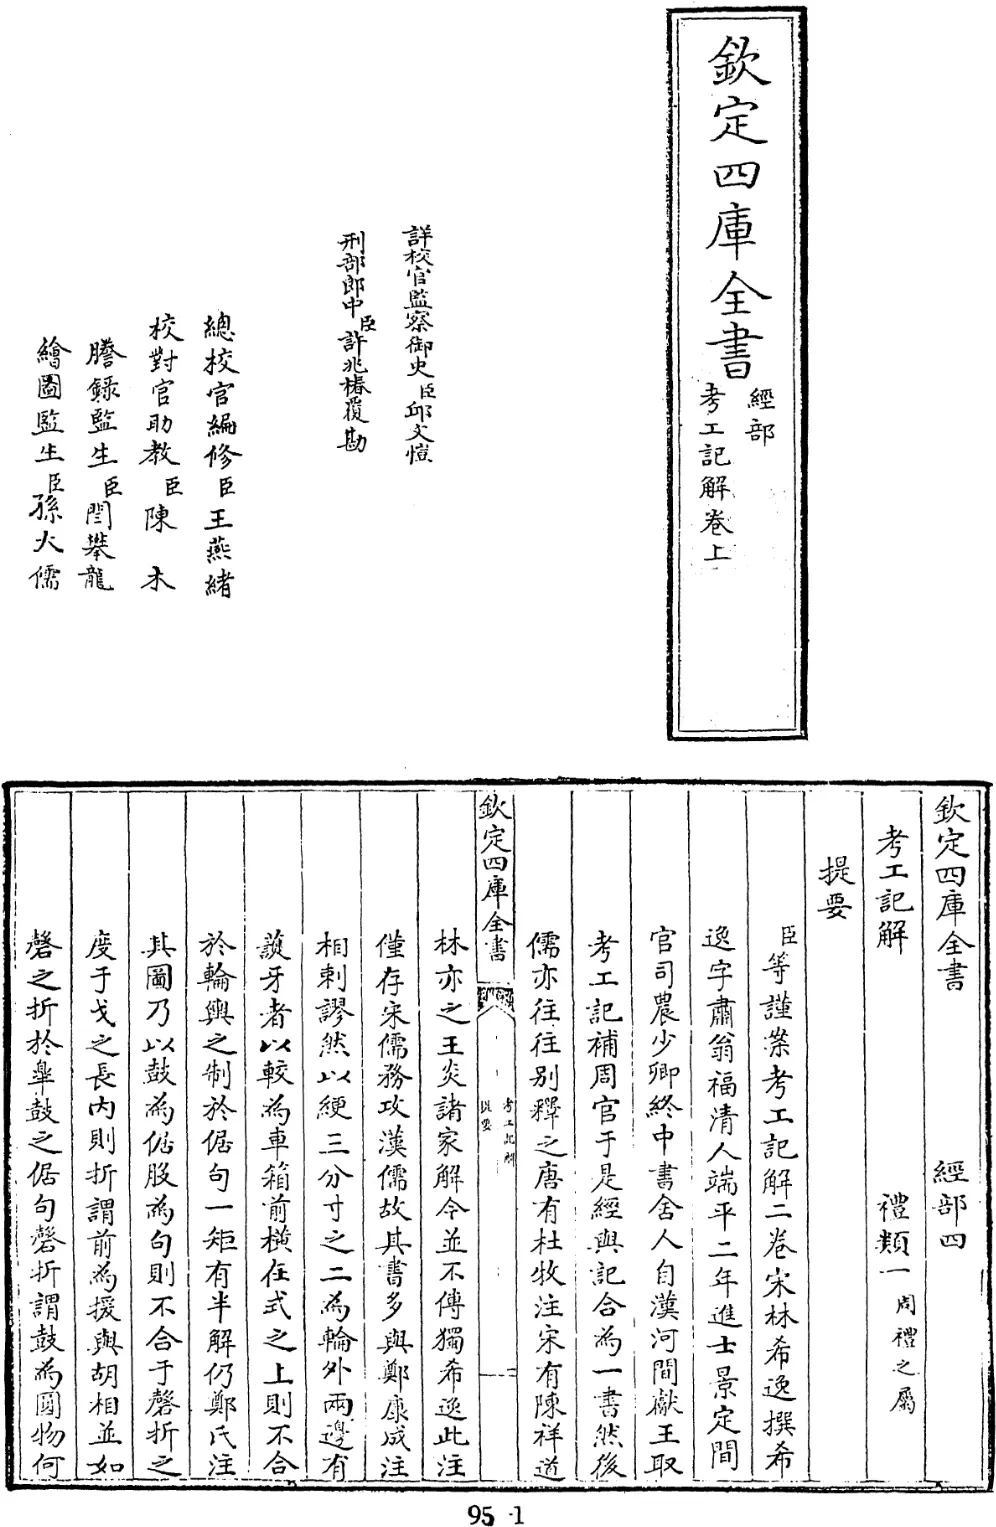 欽定四庫全書
經部
考工記解卷上
詳校官監察御史臣邱文愷
刑部郎中臣許兆椿覆勘
總校官編修臣王燕緒
校對官助教臣陳木
謄錄監生臣閆攀龍
繪圖監生臣孫大儒
欽定四庫全書 經部四
考工記解 禮類一周禮之屬
提要
臣等謹案考工記解二卷宋林希逸撰希
逸字肅翁福清人端平二年進士景定間
官司農少卿終中書舍人自漢河間獻王取
考工記補周官于是經與記合為一書然後
儒亦往往别釋之唐有杜牧注宋有陳祥道
欽定四庫全書
考工記解
提要
一
林亦之王炎諸家解今並不傳獨希逸此注
僅存宋儒務攻漢儒故其書多與鄭康成注
相剌謬然以綆三分寸之二為輪外兩邊有
護牙者以較為車箱前横在式之上則不合
於輪輿之制於倨句一矩有半解仍鄭氏注
其圖乃以鼓為倨股為句則不合于磬折之
度于戈之長内則折謂前為援與胡相並如
磬之折於臯鼓之倨句磬折謂鼓為圓物何
95-1